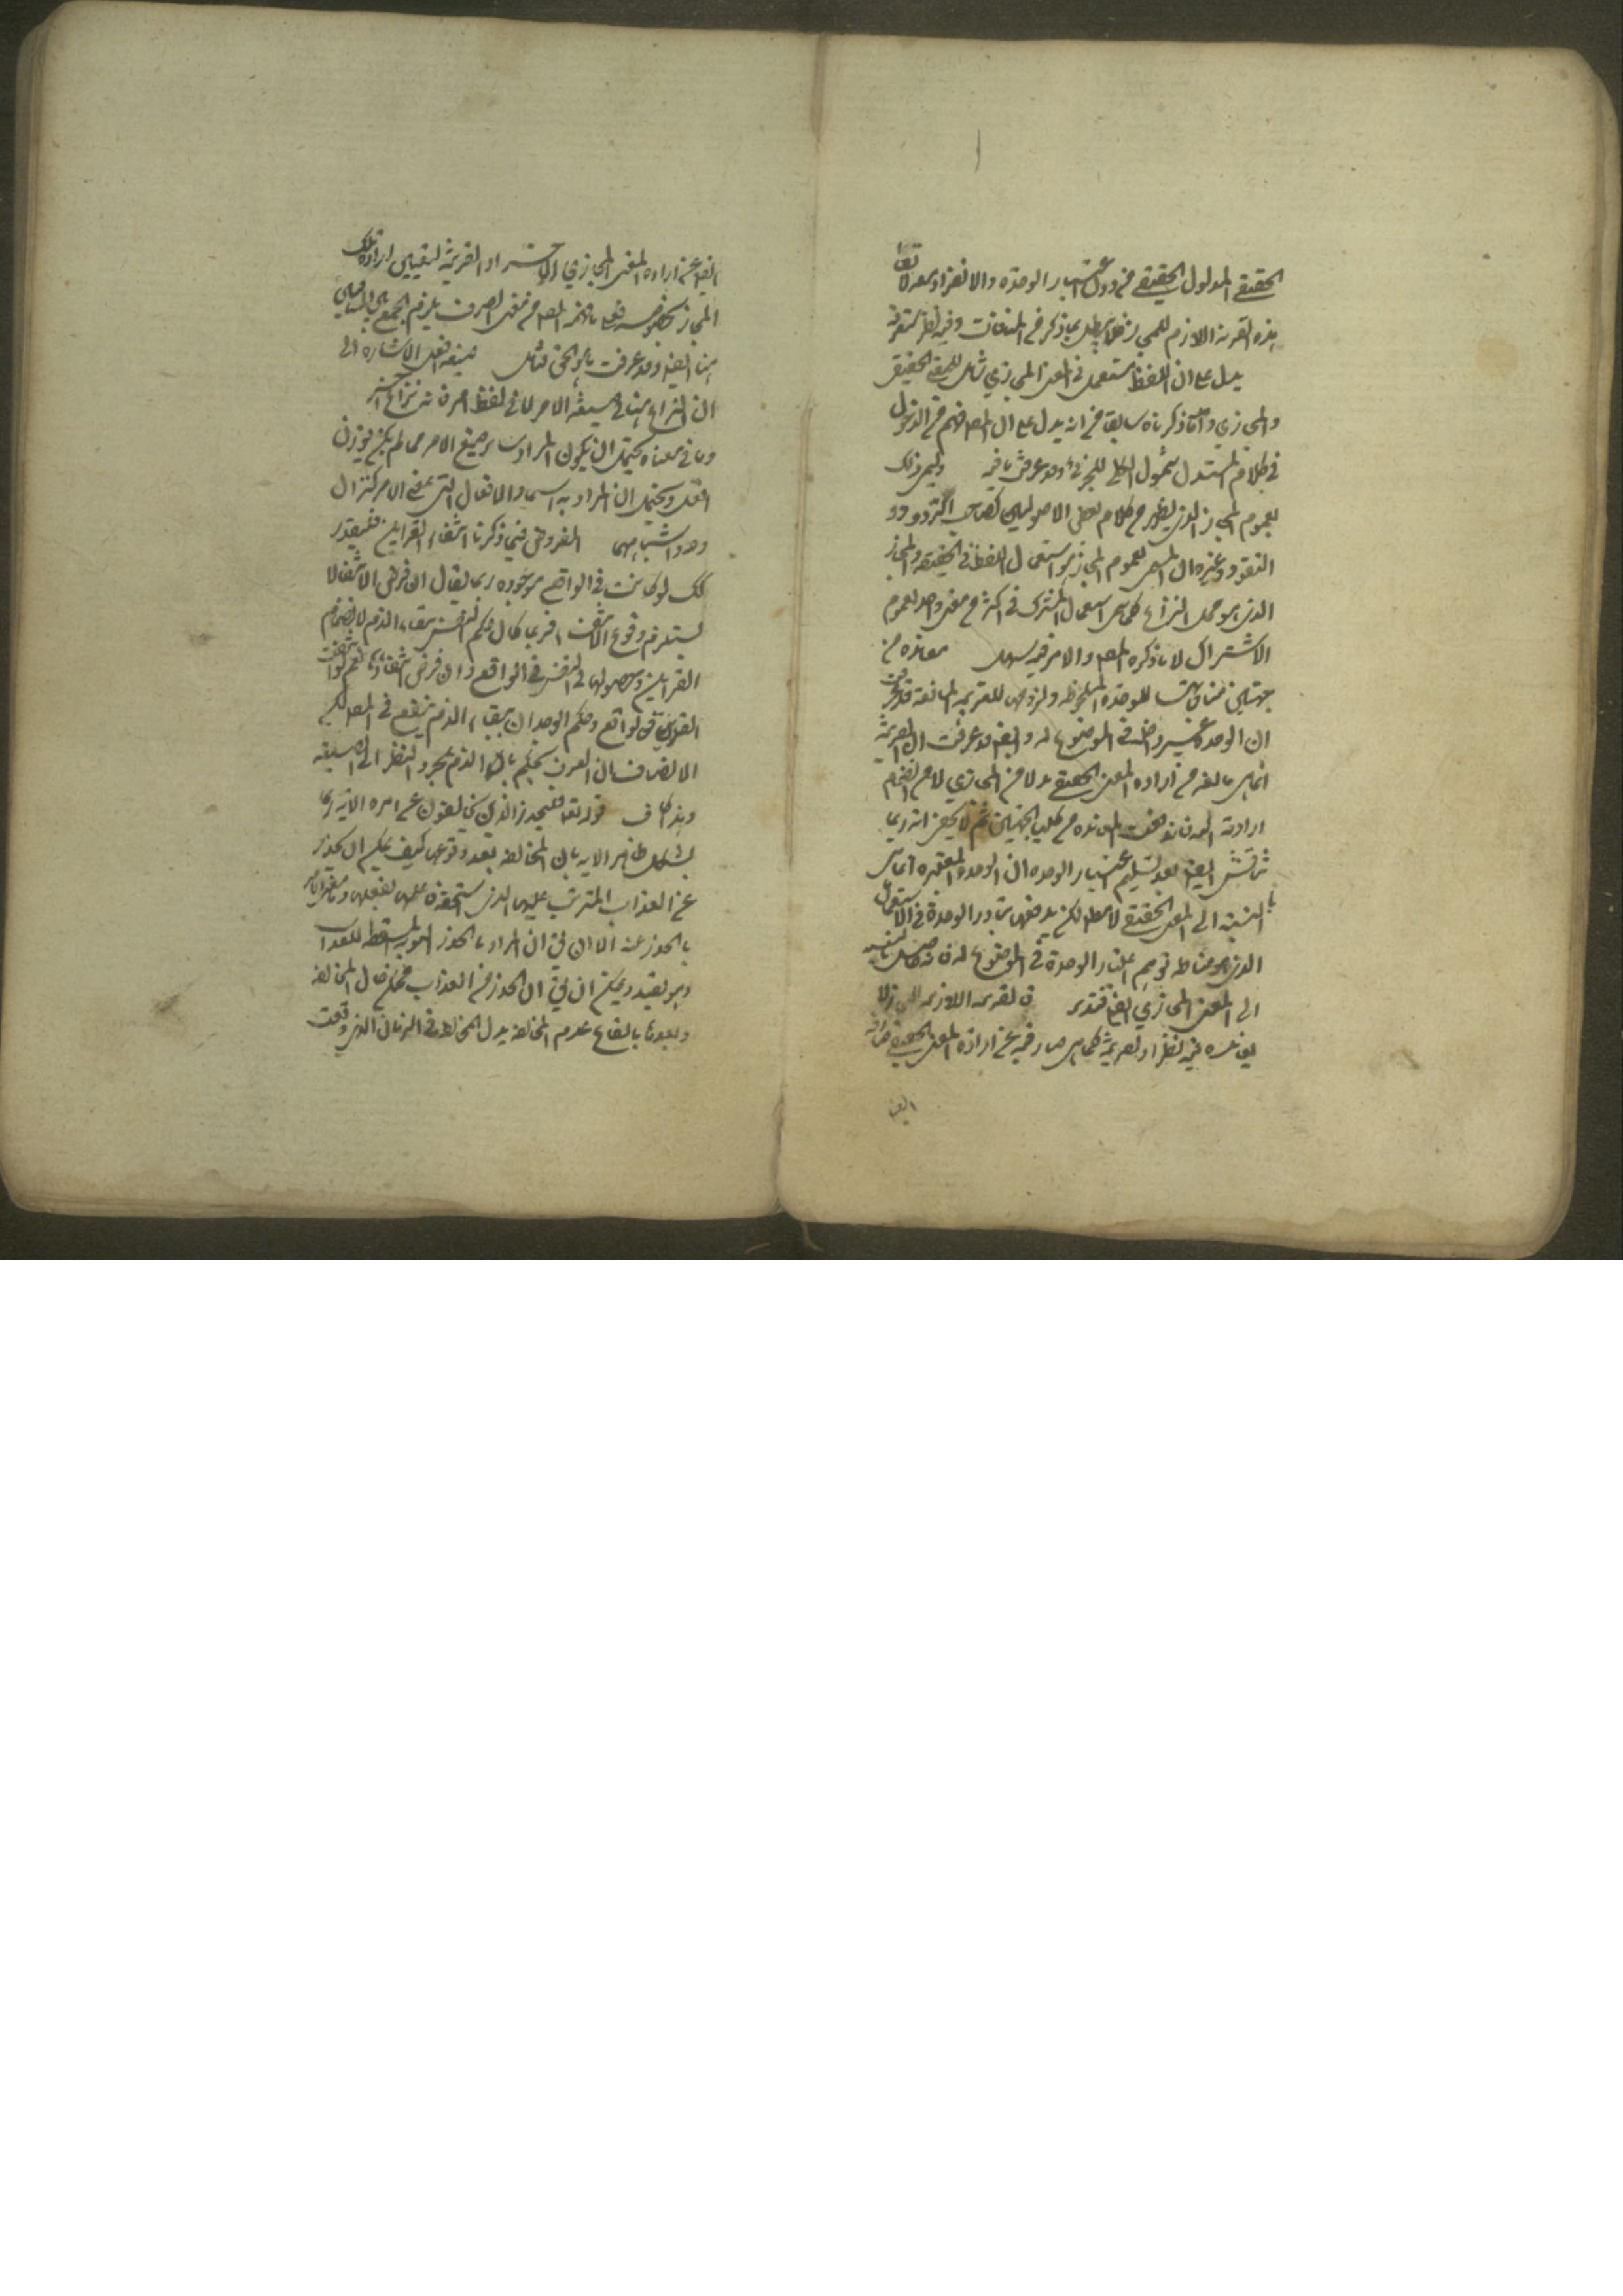 الحقيقي المدلول الحقيقي من دون اعتبار الوحدة والانفراد معه لا
هذه القرينة اللازم للمجاز فلا يبطل بما ذكر من المنافات وفيه نظر
يدل على ان اللفظ مستعمل في المعنى المجازي شامل للمعنى الحقيقي
والمجازي واما ما ذكرناه سابقا من انه يدل على ان المص فهم من الدخول
في كلام المستدل شمول الكلي للجزئي وقد عرفت ما فيه وليس ذلك
بعموم المجاز الذي يظهر من كلام بعض الاصوليين كصاحب
النقود وغيره ان المسمى بعموم المجاز هو استعمال اللفظ في الحقيقة والمجاز
الذي هو محل النزاع كما سمى استعمال المشترك في اكثر من معنى واحد بعموم
الاشتراك لا ما ذكره المص والامر فيه سهل معاندة من
جهتين منافاتها للوحدة الملحوظة ولزومها للقرينة المانعة قد عرفت
ان الوحدة غير داخلة في الموضوع له وايضا قد عرفت ان القرينة
انما هي مانعة من ارادة المعنى الحقيقي بدلا من المجازي لا من انضمام
ارادته اليه فاندفعت المعاندة من كلا الجهتين ثم لا يخفى انه ربما
يناقش ايضا بعد تسليم اعتبار الوحدة ان الوحدة المعتبرة انما هي
بالنسبة الى المعنى الحقيقي لا مطلقا لكن يدفعها تبادر الوحدة في الاستعمال
الذي هو مناط توهم اعتبار الوحدة في الموضوع له فانه حاصل بالنسبة
الى المعنى المجازي ايضا فتدبر فالقرينة اللازمة للمجاز لا
يعانده فيه نظر اذ القرينة كما هي صارفة عن ارادة المعنى الحقيقي صارفة
ايضا
ايضا عن ارادة المعنى المجازي الاخر اذ القرينة لتعيين ارادة ذلك
المجاز بخصوصه فعلى ما فهمه المص من معنى الصرف يلزم الجمع بين المتنافيين
هنا ايضا وقد عرفت ما هو الحق فتامل صيغة افعل الاشارة الى
ان النزاع هنا في صيغة الامر لا في لفظ امر فان نزاع اخر
وما في معناه يحتمل ان يكون المراد سائر صيغ الامر مما لم يكن بوزن
افعل ويحتمل ان المراد به اسماء الافعال التي بمعنى الامر كنزال
ورويد واشباههما المفروض فيما ذكرنا انتفاء القراين فليقدر
كك لو كانت في الواقع موجوده ربما يقال ان فرض الانتفاء لا
يستلزم وقوع الانتفاء فربما كان حكم النفس ببقاء الذم لانضمام
القراين وحصولها في النفس في الواقع وان فرض انتفاؤها نعم لو انتفت
القراين في الواقع وحكم الوجدان ببقاء الذم ينفع في المص لكن
الانصاف ان العرف يحكم بان الذم بمجرد النظر الى الصيغة
وهذا كاف قوله تعالى فليحذر الذين يخالفون عن امره الآية ربما
يشكل ظاهر الاية بان المخالفة بعد وقوعها كيف يمكن ان يحذر
عن العذاب المترتب عليها الذي استحقه عليها بفعلها
بالحذر عنه الا ان يق ان المراد بالحذر التوبة المسقطة للعذاب
وهو بعيد ويمكن ان يق ان الحذر من العذاب يمكن حال المخالفة
وبعدها بايقاع عدم المخالفة بدل المخالفة في الزمان الذي وقعت